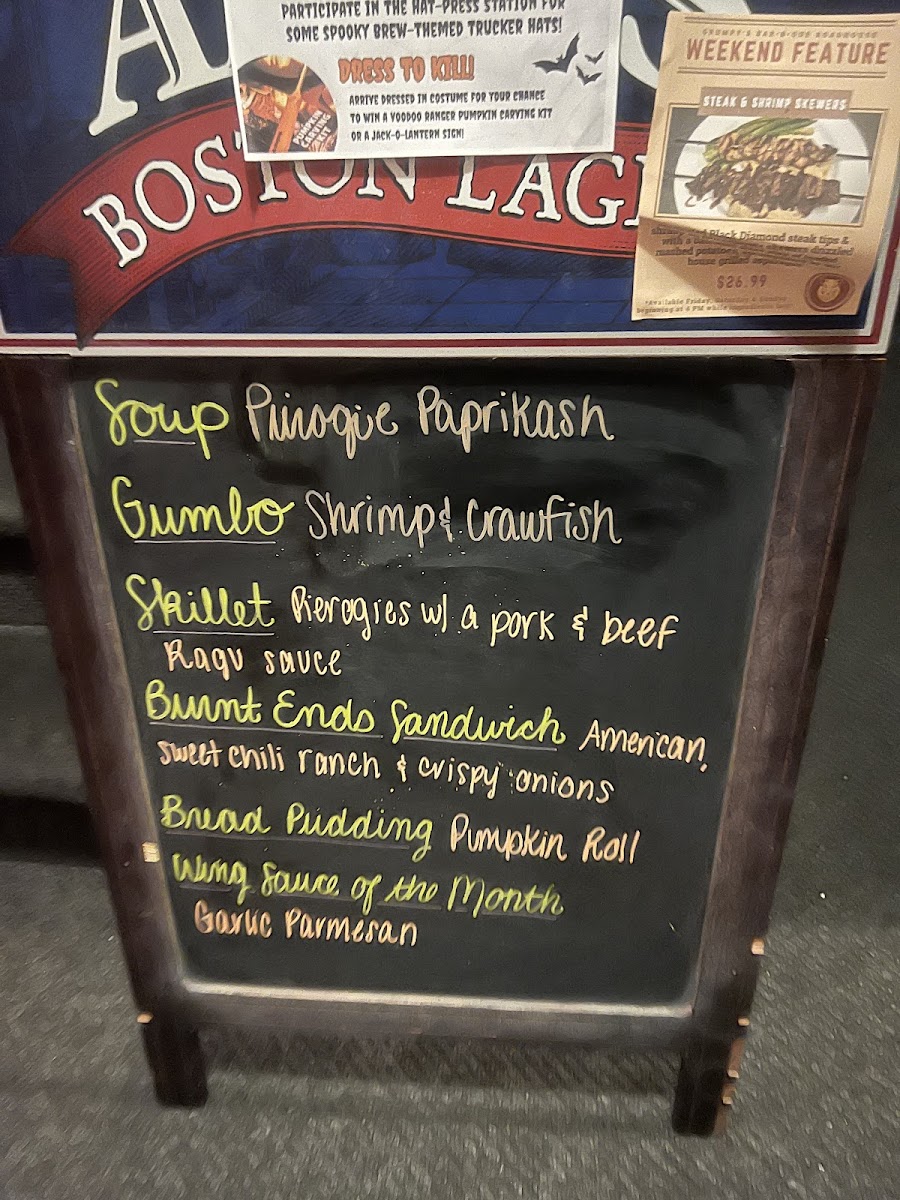 PARTICIPATE IN THE HAT-PRESS STATION FOR
SOME SPOOKY BREW-THEMED TRUCKER HATS!
DRESS TO KILL!
ARRIVE DRESSED IN COSTUME FOR YOUR CHANCE
TO WIN A VOODOO RANGER PUMPKIN CARVING KIT
OR A JACK-O-LANTERN SIGN!
PUMPKIN
CARVING
KIT
BOSTON LAG
GRUMPY'S BAR-B-QUE ROADHOUSE
WEEKEND FEATURE
STEAK & SHRIMP SKEWERS
Black Diamond steak tips &
with a
mashed
house grilled
$26.99
*Available Friday, Saturday & Sunday
beginning at 4 PM while
Soup Piirogie Paprikash
Gumbo Shrimp & Crawfish
Skillet Pierogies w/ a pork & beef
Ragu sauce
Burnt Ends Sandwich American,
sweet chili ranch & crispy onions
Bread Pudding Pumpkin Roll
Wing Sauce of the Month
Garlic Parmesan